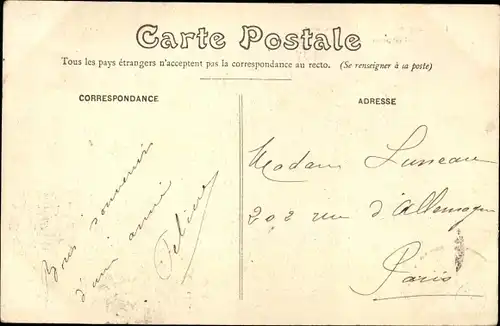 Carte Postale
Tous les pays étrangers n'acceptent pas la correspondance au recto. (Se renseigner à sa poste)
CORRESPONDANCE
Bons souvenirs
d'une amie
ADRESSE
Madame
202 rue d'Allemagne
Paris